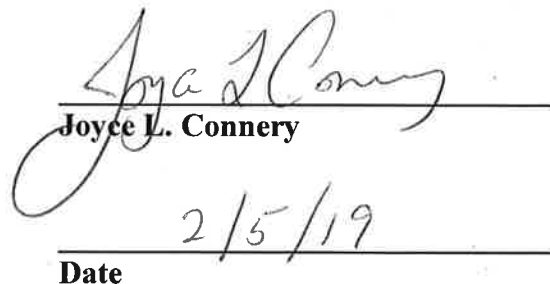 Joyce L Connery
Joyce L. Connery
2/5/19
Date